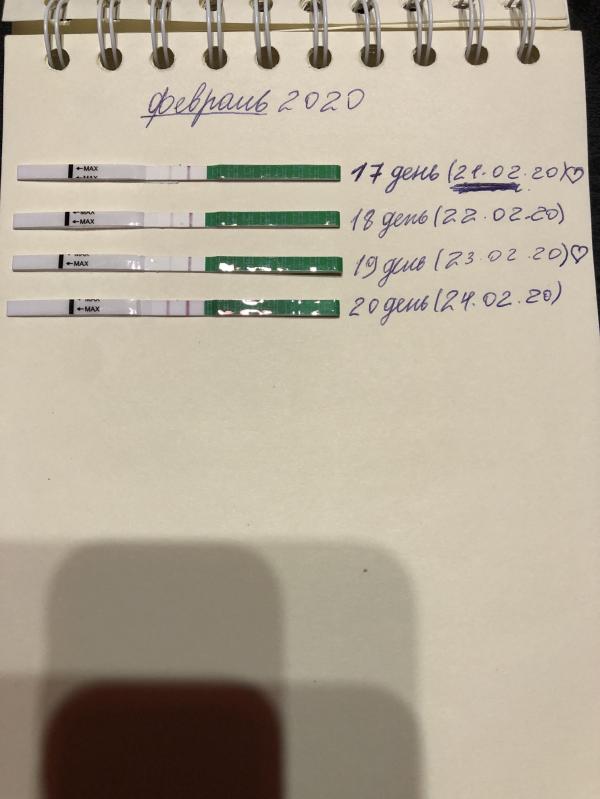 февраль 2020
←MAX
MAX
17 день (21.02.20)♡
MAX
←MAX
18 день (22.02.20)
←MAX
19 день (23.02.20)♡
MAX
←MAX
20 день (24.02.20)